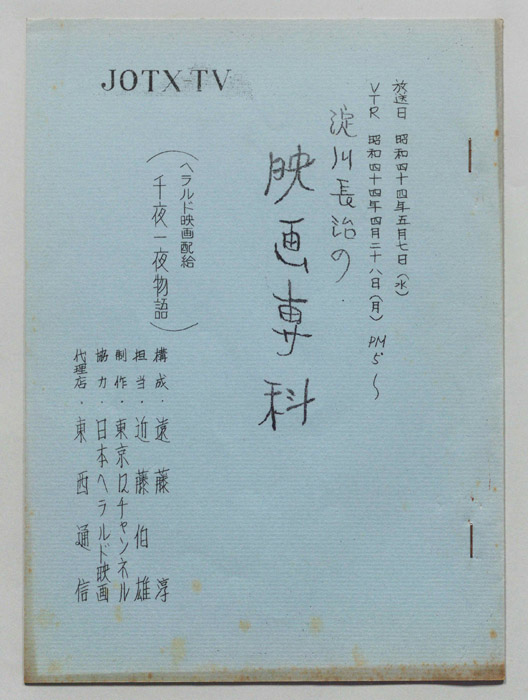 JOTX-TV
放送日 昭和四十四年五月七日(水)
VTR 昭和四十四年四月二十八日(月) PM5〜
淀川長治の
映画専科
ヘラルド映画配給
(千夜一夜物語)
構成・遠藤 淳
担当・近藤伯雄
制作・東京12チャンネル
協力・日本ヘラルド映画
代理店・東西通信